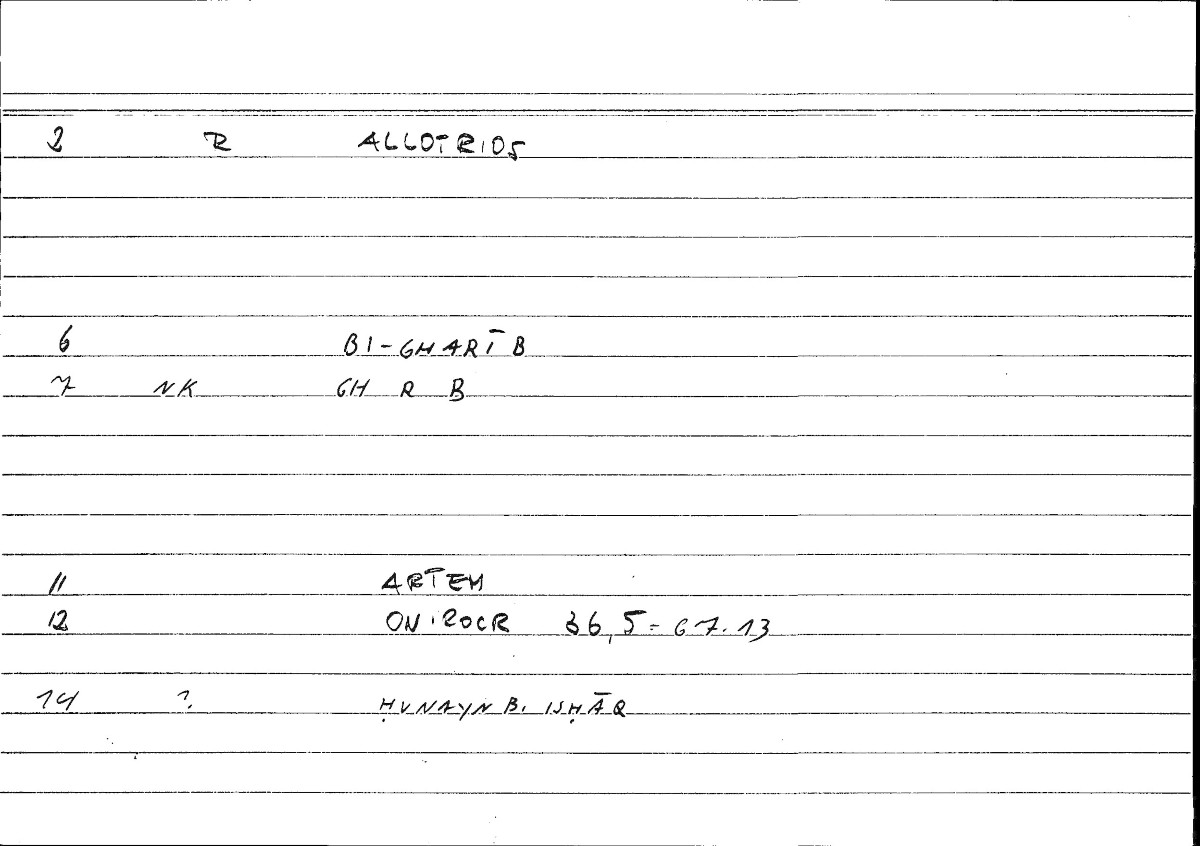 2 R ALLOTRIOS
6 BI-GHARĪB
7 NK GH R B
11 ARTEM
12 ONIROCR 36,5 = 67.13
14 ? ḤUNAYN B. ISḤĀQ